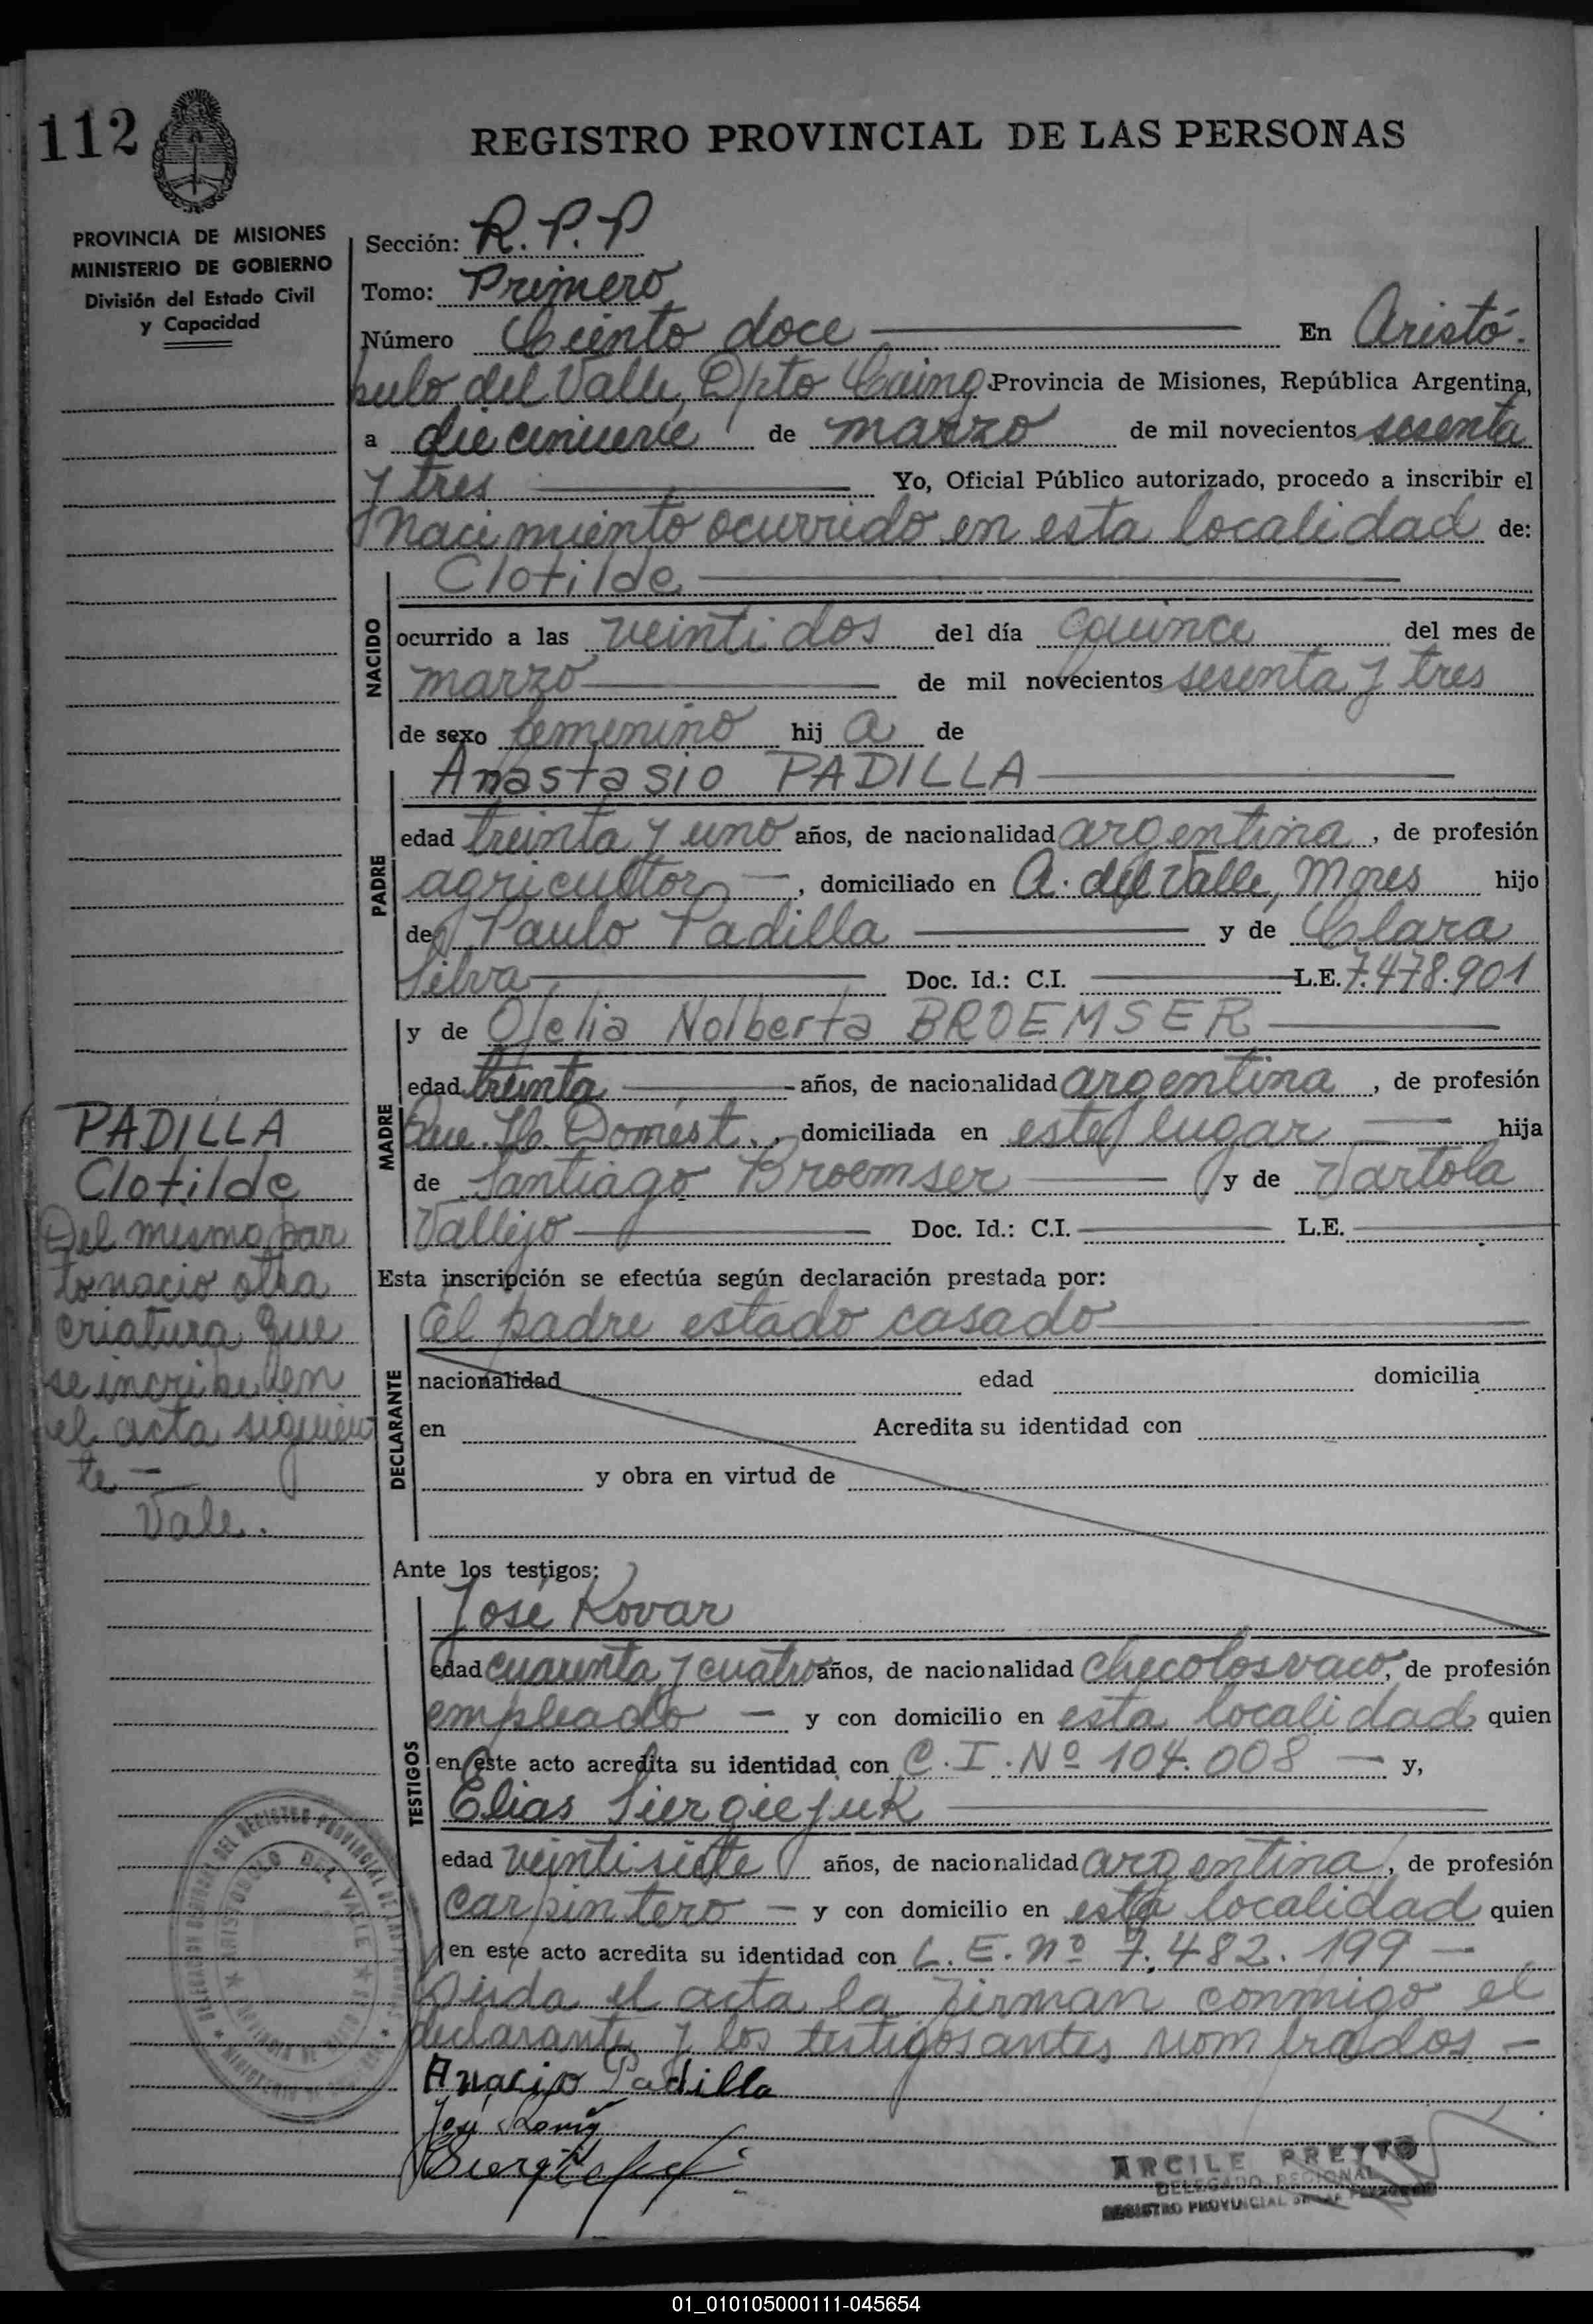 112
REGISTRO PROVINCIAL DE LAS PERSONAS
PROVINCIA DE MISIONES
MINISTERIO DE GOBIERNO
División del Estado Civil
y Capacidad
Sección: R.P.P
Tomo: Primero
Número Ciento doce En Aristó-
bulo del Valle, Dpto Caing. Provincia de Misiones, República Argentina,
a diecinueve de marzo de mil novecientos sesenta
y tres Yo, Oficial Público autorizado, procedo a inscribir el
Nacimiento ocurrido en esta localidad de:
NACIDO
Clotilde
ocurrido a las veintidos del día quince del mes de
marzo de mil novecientos sesenta y tres
de sexo femenino hij a de
PADRE
Anastasio PADILLA
edad treinta y uno años, de nacionalidad argentina, de profesión
agricultor, domiciliado en A. del Valle, Mnes hijo
de Paulo Padilla y de Clara
Silva Doc. Id.: C.I. L.E. 7.478.901
MADRE
y de Ofelia Nolberta BROEMSER
edad treinta años, de nacionalidad argentina, de profesión
Que. H. Domést., domiciliada en este lugar hija
de Santiago Broemser y de Vartola
Vallejo Doc. Id.: C.I. L.E.
PADILLA
Clotilde
Del mismo par
to nacio otra
criatura que
se incribe en
el acta siguien
te -
Vale.
Esta inscripción se efectúa según declaración prestada por:
DECLARANTE
El padre estado casado
nacionalidad edad domicilia
en Acredita su identidad con
y obra en virtud de
Ante los testigos:
TESTIGOS
José Kovar
edad cuarenta y cuatro años, de nacionalidad checolosvaco, de profesión
empleado - y con domicilio en esta localidad quien
en este acto acredita su identidad con C.I. Nº 104.008 - y,
Elias Siergiejuk
edad veintisiete años, de nacionalidad argentina, de profesión
carpintero - y con domicilio en esta localidad quien
en este acto acredita su identidad con L.E. nº 7.482.199 -
Leida el acta la firman conmigo el
declarante y los testigos antes nombrados -
Anacio Padilla
José
ARCILE PRETTO
DELEGADO REGIONAL
REGISTRO PROVINCIAL DE LAS PERSONAS
ARISTOBULO DEL VALLE
01_010105000111-045654